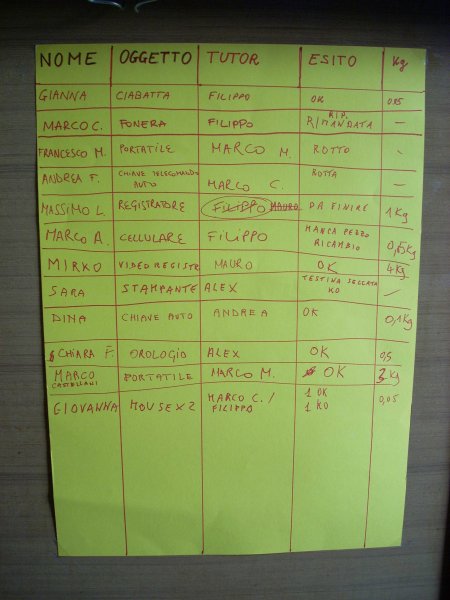 NOME OGGETTO TUTOR ESITO Kg
GIANNA CIABATTA FILIPPO OK 0,15
MARCO C. FONERA FILIPPO RIP. RIMANDATA —
FRANCESCO M. PORTATILE MARCO M. ROTTO -
ANDREA F. CHIAVE TELECOMANDO AUTO MARCO C. ROTTA —
MASSIMO L. REGISTRATORE FILIPPO MAURO DA FINIRE 1 Kg
MARCO A. CELLULARE FILIPPO MANCA PEZZO RICAMBIO Kg
MIRKO VIDEOREGISTR MAURO OK 4 Kg
SARA STAMPANTE ALEX TESTINA SECCATA KO —
DINA CHIAVE AUTO ANDREA OK 0,1 Kg
CHIARA F. OROLOGIO ALEX OK 0,5
MARCO CASTELLANI PORTATILE MARCO M. OK Kg
GIOVANNA MOUSE X 2 MARCO C. / FILIPPO 1 OK 1 KO 0,05